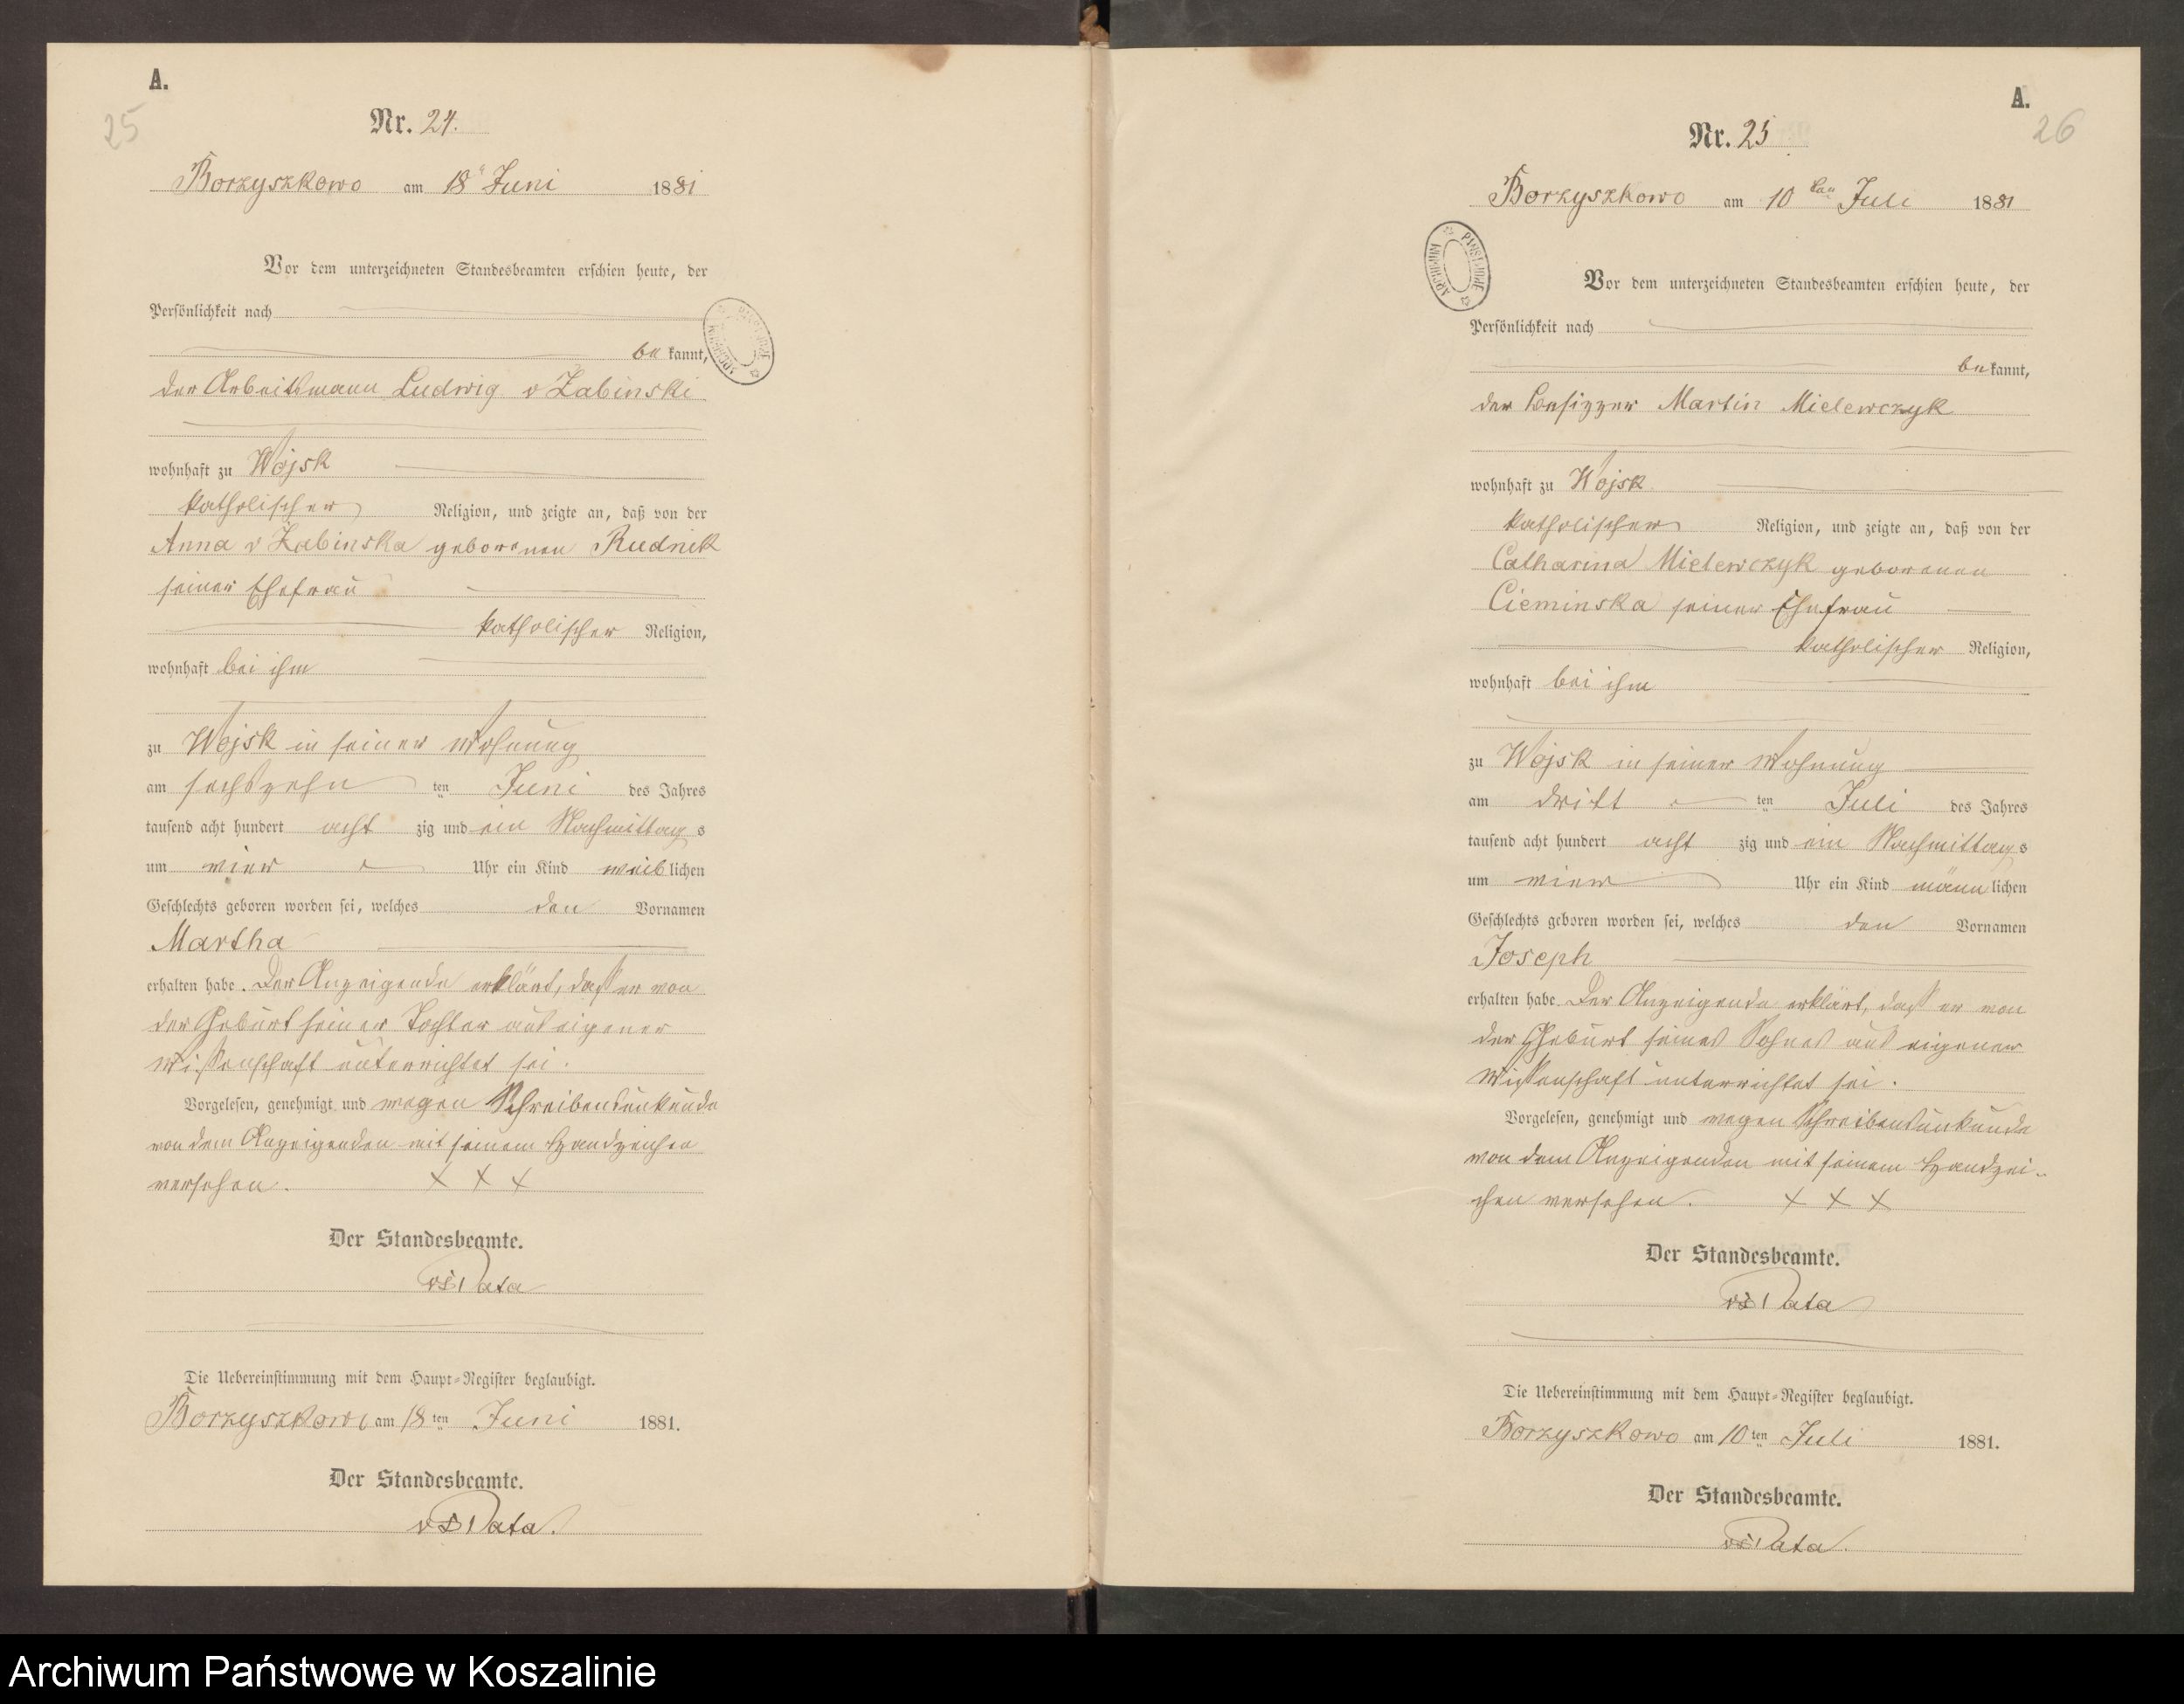 A.
25
Nr. 24.
Borzyszkowo am 18 Juni 1881
Vor dem unterzeichneten Standesbeamten erschien heute, der
Persönlichkeit nach
be kannt,
der Arbeitsmann Ludwig v Zabinski
wohnhaft zu Wojsk
katholischer Religion, und zeigte an, daß von der
Anna v Zabinska geborenen Rudnik
seiner Ehefrau
katholischer Religion,
wohnhaft bei ihm
zu Wojsk in seiner Wohnung
am sechszehn ten Juni des Jahres
tausend acht hundert acht zig und ein Nachmittag s
um vier Uhr ein Kind weib lichen
Geschlechts geboren worden sei, welches den Vornamen
Martha
erhalten habe. Der Anzeigende erklärt, daß er von
der Geburt seiner Tochter aus eigener
Wissenschaft unterrichtet sei.
Vorgelesen, genehmigt und wegen Schreibensunkunde
von dem Anzeigenden mit seinem Handzeichen
versehen. + + +
Der Standesbeamte.
Data
Die Uebereinstimmung mit dem Haupt-Register beglaubigt.
Borzyszkowo am 18 ten Juni 1881.
Der Standesbeamte.
Data.
A.
26
Nr. 25
Borzyszkowo am 10 ten Juli 1881
ARCHIWUM PAŃSTWOWE
Vor dem unterzeichneten Standesbeamten erschien heute, der
Persönlichkeit nach
be kannt,
der Besitzer Martin Mielewczyk
wohnhaft zu Wojsk
katholischer Religion, und zeigte an, daß von der
Catharina Mielewczyk geborenen
Cieminska seiner Ehefrau
katholischer Religion,
wohnhaft bei ihm
zu Wojsk in seiner Wohnung
am dritt ten Juli des Jahres
tausend acht hundert acht zig und ein Nachmittag s
um vier Uhr ein Kind männ lichen
Geschlechts geboren worden sei, welches den Vornamen
Joseph
erhalten habe. Der Anzeigende erklärt, daß er von
der Geburt seines Sohnes aus eigener
Wissenschaft unterrichtet sei.
Vorgelesen, genehmigt und wegen Schreibensunkunde
von dem Anzeigenden mit seinem Handzei-
chen versehen. + + +
Der Standesbeamte.
Data
Die Uebereinstimmung mit dem Haupt-Register beglaubigt.
Borzyszkowo am 10 ten Juli 1881.
Der Standesbeamte.
Data.
Archiwum Państwowe w Koszalinie